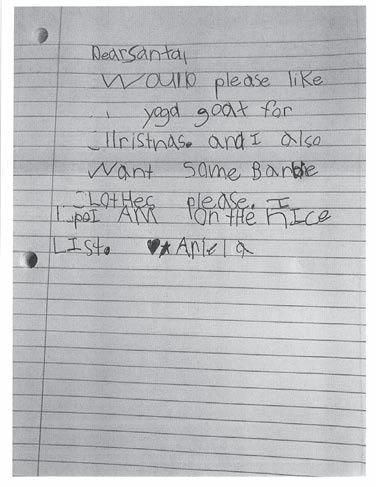 Dear Santa,
Would please like
yoga goat for
Christmas. and I also
Want Some Barbie
Clothes please. I
I AM on the nice
LIst. ♥★